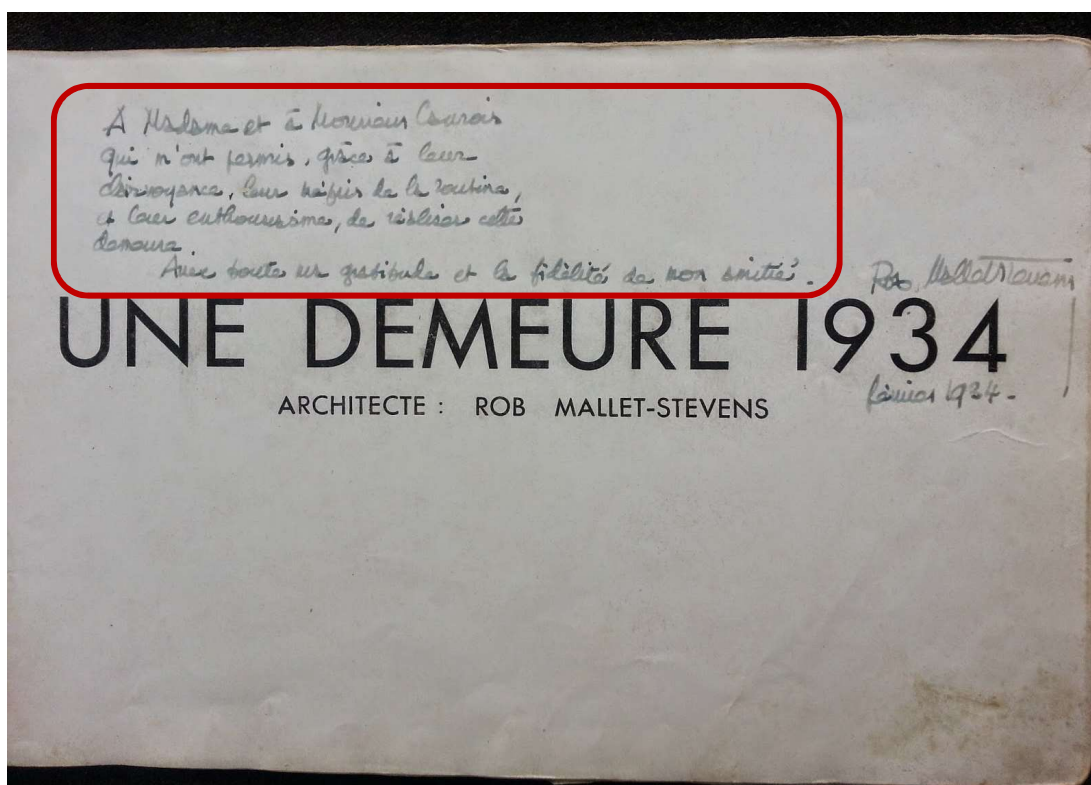 A Madame et à Monsieur Cavrois
qui m'ont permis, grâce à leur
clairvoyance, leur mépris de la routine,
et leur enthousiasme, de réaliser cette
demeure.
Avec toute ma gratitude et la fidélité de mon amitié. Rob Mallet Stevens
UNE DEMEURE 1934
ARCHITECTE : ROB MALLET-STEVENS
février 1934 -